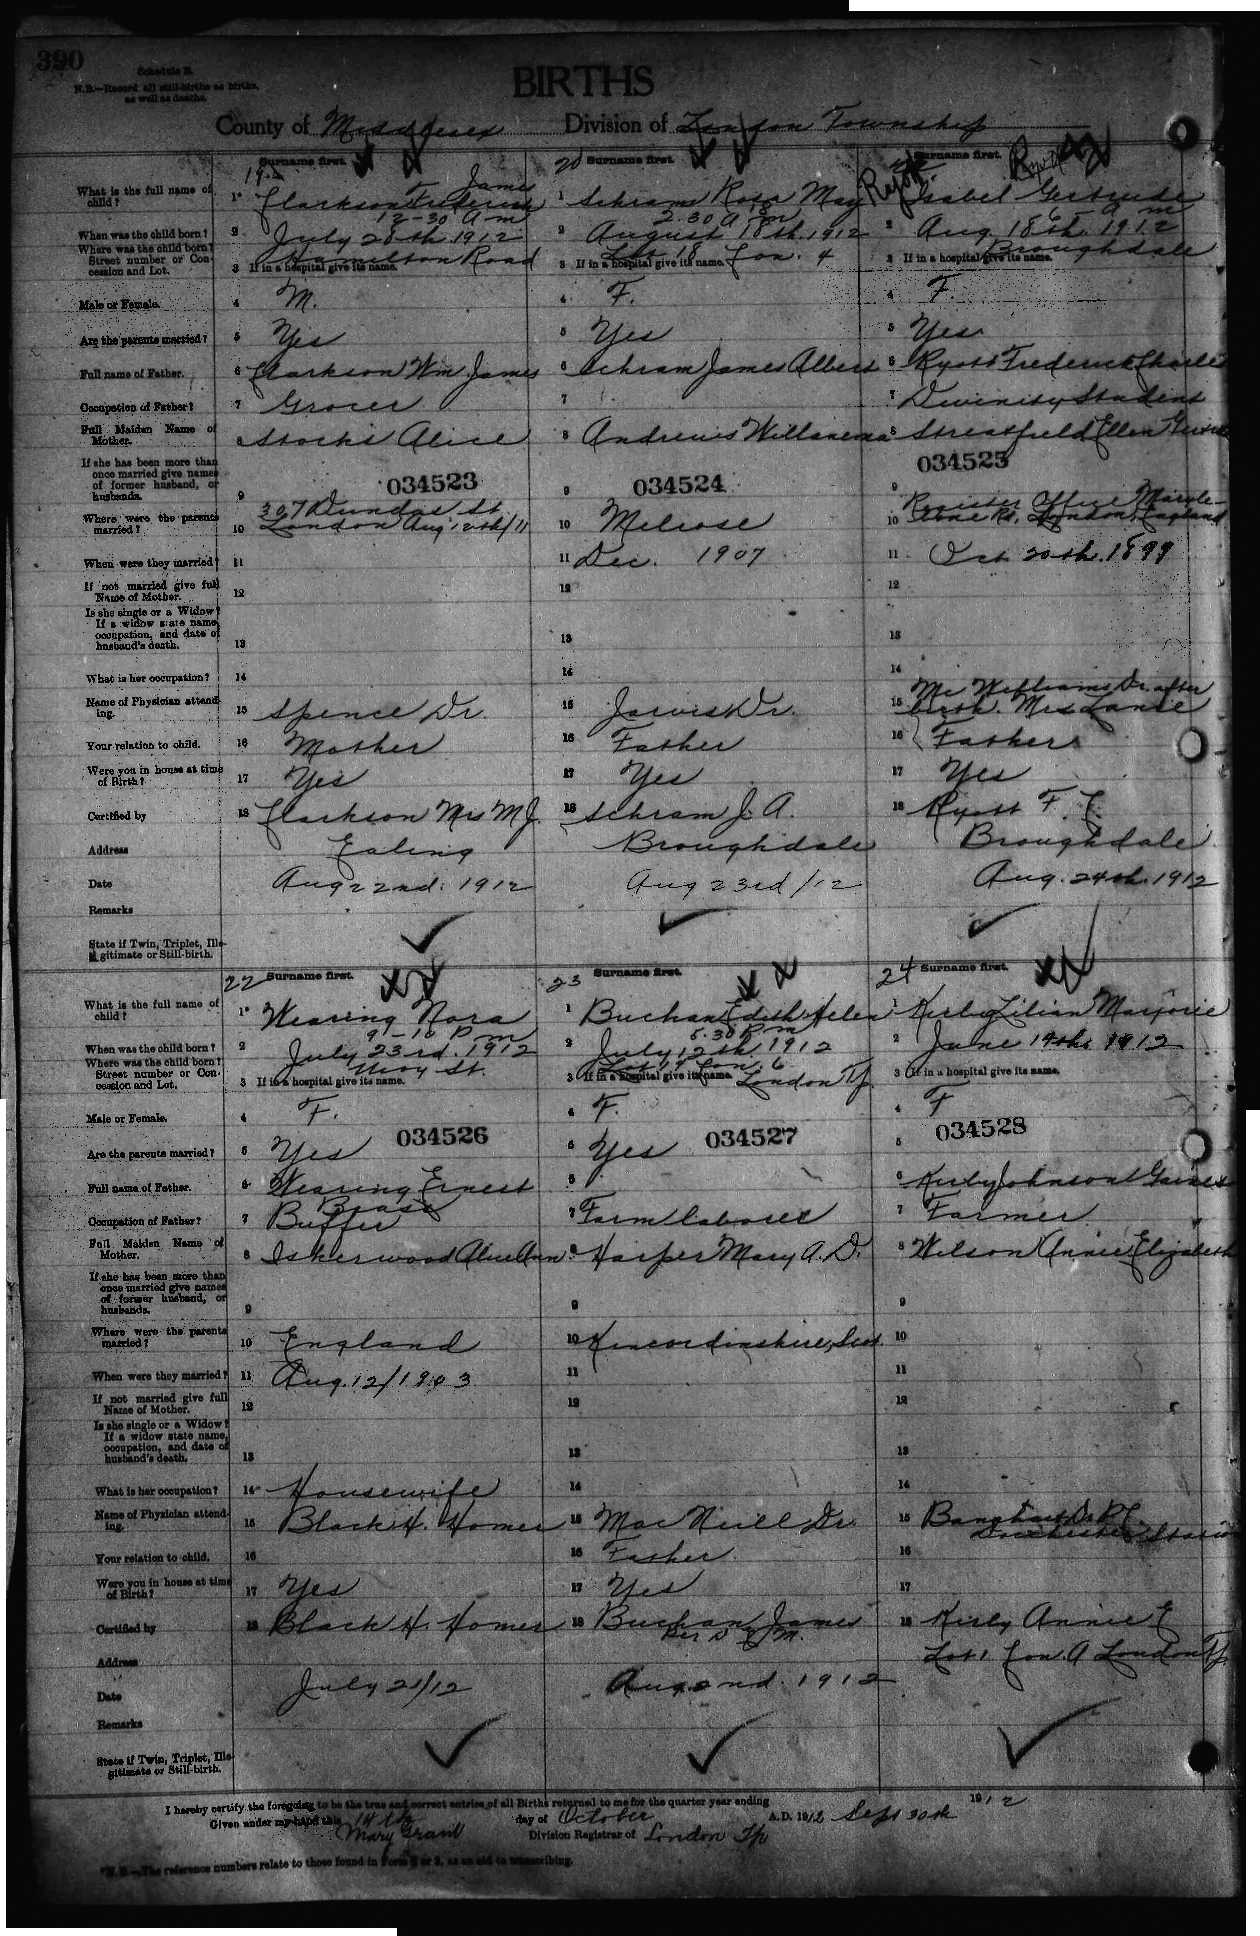 390
Schedule B.
N.B.—Record all still-births as births,
as well as deaths.
BIRTHS
County of Middlesex Division of London Township
19 Surname first. 20 Surname first. Surname first.
What is the full name of child? 1 Clarkson Frederick James 1 Schram Rosa May Ryott Isabel Gertrude
When was the child born? 2 12-30 A m July 28th 1912 2 2.30 A m August 18th 1912 2 Aug. 18th 1912
Where was the child born? Street number or Concession and Lot. 3 If in a hospital give its name. Hamilton Road 3 If in a hospital give its name. Lot 18 Con. 4 3 If in a hospital give its name. Broughdale
Male or Female. 4 M. 4 F. 4 F.
Are the parents married? 5 Yes 5 Yes 5 Yes
Full name of Father. 6 Clarkson Wm James 6 Schram James Albert 6 Ryott Frederick Charles
Occupation of Father? 7 Grocer 7 7 Divinity Student
Full Maiden Name of Mother. 8 Stocks Alice 8 Andrews Willanema 8 Streatfield Ellen
If she has been more than once married give names of former husband, or husbands. 9 034523 9 034524 9 034525
Where were the parents married? 10 307 Dundas St London Aug 12th/11 10 Melrose 10 Register Office Maryle-bone Rd. London, England
When were they married? 11 11 Dec. 1907 11 Oct 20th. 1899
If not married give full Name of Mother. 12 12 12
Is she single or a Widow? If a widow state name, occupation, and date of husband's death. 13 13 13
What is her occupation? 14 14 14
Name of Physician attending. 15 Spence Dr. 15 Jarvis Dr. 15 Mc Williams Dr. after birth. Mrs Lance
Your relation to child. 16 Mother 16 Father 16 Father
Were you in house at time of Birth? 17 Yes 17 Yes 17 Yes
Certified by 18 Clarkson Mrs M J. 18 Schram J. A. 18 Ryott F. C.
Address Ealing Broughdale Broughdale
Date Aug 22nd. 1912 Aug 23rd/12 Aug. 24th. 1912
Remarks
State if Twin, Triplet, Illegitimate or Still-birth.
22 Surname first. 23 Surname first. 24 Surname first.
What is the full name of child? 1 Wearing Nora 1 Buchan Edith Helen 1 Kirby Lilian Marjorie
When was the child born? 2 9-10 P m July 23rd. 1912 2 5.30 P m July 12th 1912 2 June 19th 1912
Where was the child born? Street number or Concession and Lot. 3 If in a hospital give its name. St. 3 If in a hospital give its name. Lot 19 Con. 6 London Tp. 3 If in a hospital give its name.
Male or Female. 4 F. 4 F. 4 F
Are the parents married? 5 Yes 034526 5 Yes 034527 5 034528
Full name of Father. 6 Wearing Ernest 6 6 Kirby Johnson
Occupation of Father? 7 Brass Buffer 7 Farm laborer 7 Farmer
Full Maiden Name of Mother. 8 Iskerwood Alice Ann 8 Harper Mary A. D. 8 Wilson Annie Elizabeth
If she has been more than once married give names of former husband, or husbands. 9 9 9
Where were the parents married? 10 England 10 Kincardinshire, Scot. 10
When were they married? 11 Aug. 12/1903 11 11
If not married give full Name of Mother. 12 12 12
Is she single or a Widow? If a widow state name, occupation, and date of husband's death. 13 13 13
What is her occupation? 14 Housewife 14 14
Name of Physician attending. 15 Black H. Homer 15 Mac Neill Dr. 15 Dorchester Station
Your relation to child. 16 16 Father 16
Were you in house at time of Birth? 17 Yes 17 Yes 17
Certified by 18 Black H. Homer 18 Buchan James 18 Kirby Annie E
Address Lot 1 Con. A London Tp.
Date July 25/12 Aug 2nd. 1912
Remarks
State if Twin, Triplet, Illegitimate or Still-birth.
I hereby certify the foregoing to be the true and correct entries of all Births returned to me for the quarter year ending Sept 30th 1912
Given under my hand this 14th day of October A.D. 1912
Mary Grant Division Registrar of London Tp
*N.B.—The reference numbers relate to those found in Form 1 or 2, as an aid to transcribing.